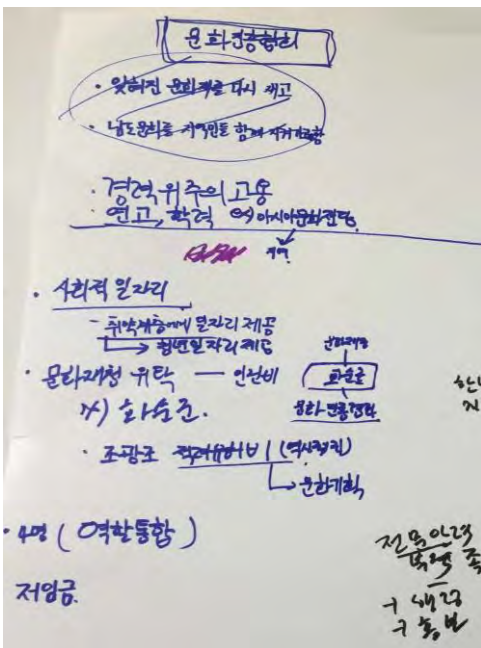 문화진흥협회
· 잊혀진 문화재를 다시 재고
· 남도문화를 지역민들 함께
· 경력위주의 고용
· 연고, 학력 ex) 아시아문화전당
지역
· 사회적 일자리
- 취약계층에게 일자리 제공
→ 청년일자리 제공
· 문화재청 위탁 — 인건비
문화재청
화순군
ex) 화순군.
· 조광조 적려유허비 (역사탐방)
→ 문화기획
· 4명 (역할통합)
저임금.
전문인력
부족